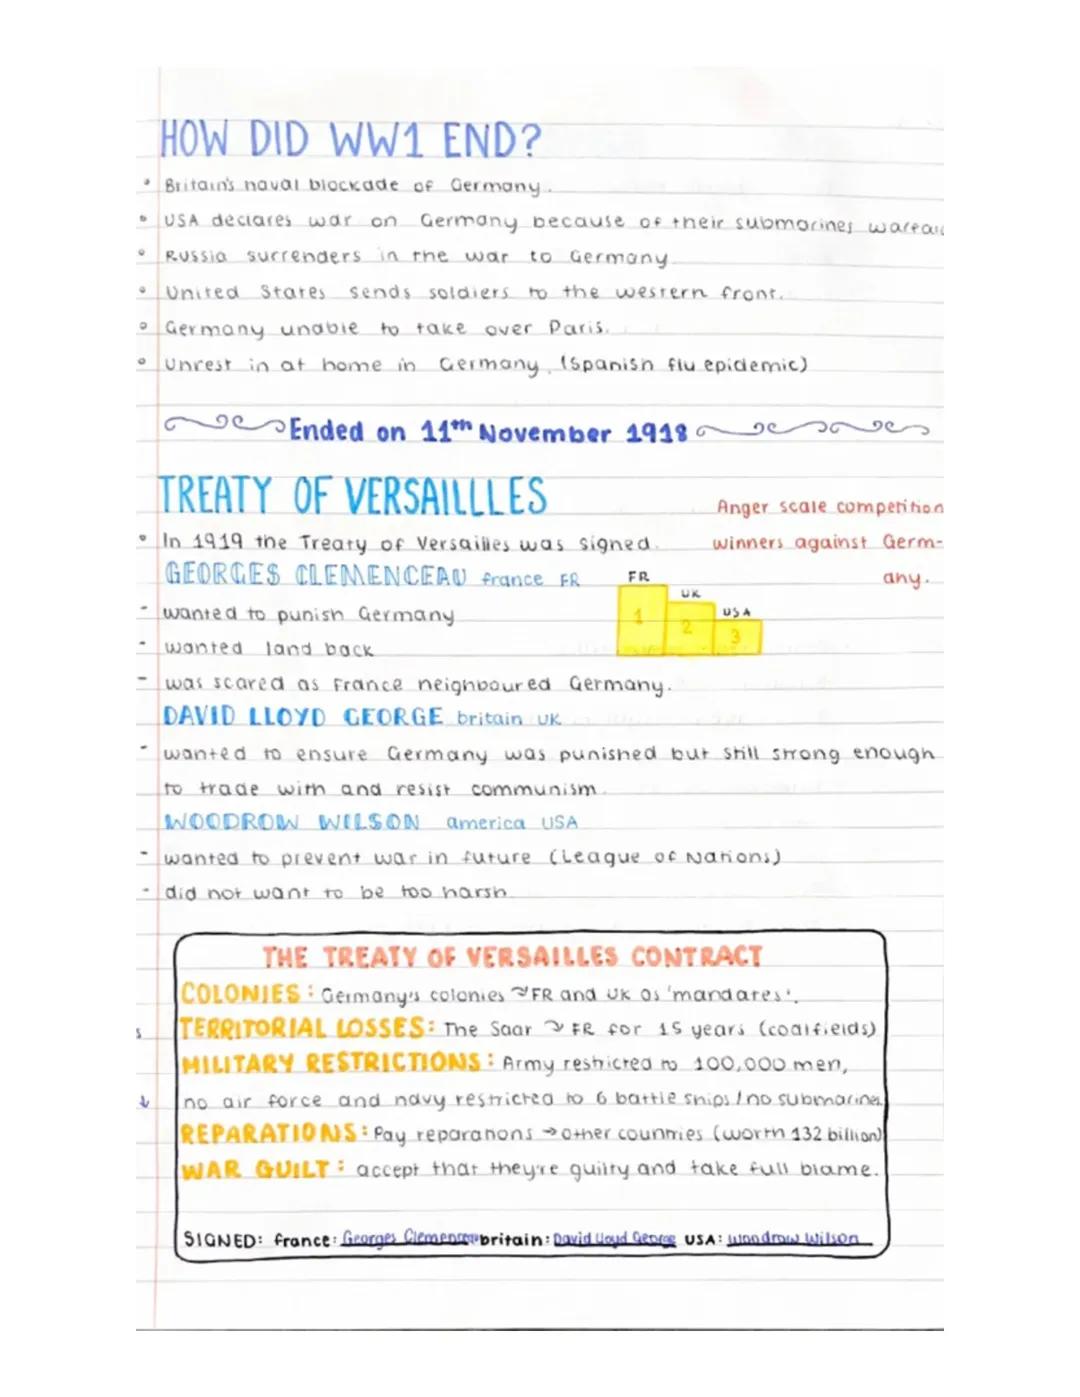 HOW DID WW1 END?
• Britain's naval blockade of Germany.
• USA declares war on Germany because of their submarines
• Russia surrenders in the war to Germany
• United States sends soldiers to the western front.
• Germany unable to take over Paris.
• Unrest in at home in Germany. (Spanish flu epidemic)
Ended on 11th November 1918
TREATY OF VERSAILLLES
Anger scale competition
• In 1919 the Treaty of Versailles was signed.
winners against Germ-
any.
GEORGES CLEMENCEAU france FR
FR
UK
USA
1
2
3
- wanted to punish Germany
- wanted land back
- was scared as France neighboured Germany.
DAVID LLOYD GEORGE britain UK
- wanted to ensure Germany was punished but still strong enough
to trade with and resist communism.
WOODROW WILSON america USA
- wanted to prevent war in future (League of Nations)
- did not want to be too harsh
THE TREATY OF VERSAILLES CONTRACT
COLONIES: Germany's colonies → FR and UK as 'mandates'.
TERRITORIAL LOSSES: The Saar → FR for 15 years (coalfields)
MILITARY RESTRICTIONS: Army restricted to 100,000 men,
no air force and navy restricted to 6 battle ships / no submarines.
REPARATIONS: Pay reparations → other countries (worth 132 billion)
WAR GUILT: accept that they're guilty and take full blame.
SIGNED: france: Georges Clemenceau britain: David Lloyd George USA: Woodrow Wilson